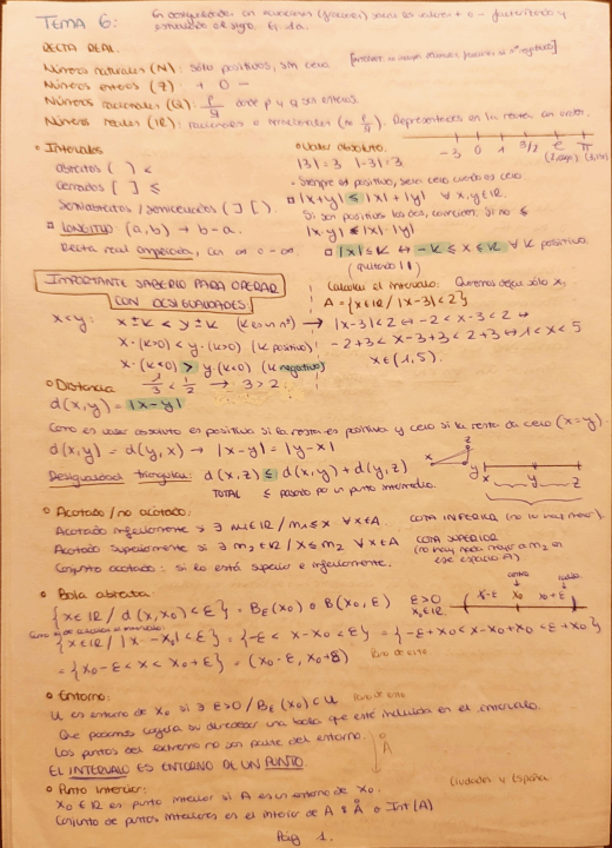 TEMA 6:
En desigualdades con ecuaciones (fracciones) sacar los valores + o - factorizado y
estudiando el signo. Ej. 1a.
RECTA REAL.
Números naturales (N): sólo positivos, sin cero
Números enteros (Z): + 0 -
Números racionales (Q): p/q donde p y q son enteros.
Números reales (IR): racionales o irracionales (no p/q). Representados en la recta con orden.
-3 0 1 3/2 e π
o Intervalos
abiertos ( ) <
cerrados [ ] ≤
Semiabiertos / semicerrados (] [).
LONGITUD (a,b) → b-a.
Recta real ampliada, con ∞ o -∞
o Valor absoluto.
|3|=3 |-3|=3.
Siempre es positivo, será cero cuando es cero.
|x+y| ≤ |x|+|y| ∀ x,y∈IR.
Si son positivos los dos, coinciden. Si no ≤
|x·y| = |x|·|y|
|x|≤K ↔ -K ≤ x ≤ K ∀ K positivo.
(quitando ||)
IMPORTANTE SABERLO PARA OPERAR
CON DESIGUALDADES:
x<y: x±K < y±K (K es un nº)
x·(K>0) < y·(K>0) (K positivo)
x·(K<0) > y·(K<0) (K negativo)
1/3 < 1/2 → 3>2
Calcular el intervalo: Queremos dejar sólo x,
A = {x∈IR / |x-3|<2}
→ |x-3|<2 ↔ -2<x-3<2 ↔
-2+3<x-3+3<2+3 ↔ 1<x<5
x∈(1,5).
o Distancia
d(x,y) = |x-y|
Como es valor absoluto es positiva si la resta es positiva y cero si la resta da cero (x=y).
d(x,y) = d(y,x) → |x-y| = |y-x|
Desigualdad triangular: d(x,z) ≤ d(x,y) + d(y,z)
TOTAL ≤ pasando por un punto intermedio.
x z y
x y z
o Acotado / no acotado:
Acotado inferiormente si ∃ m1∈IR / m1≤x ∀x∈A. COTA INFERIOR (no lo hay menor).
Acotado superiormente si ∃ m2∈IR / x≤m2 ∀x∈A COTA SUPERIOR
(no hay nada mayor a m2 en
ese espacio A)
Conjunto acotado: si lo está superior e inferiormente.
o Bola abierta:
{x∈IR / d(x,x0)<ε} = Bε(x0) o B(x0,ε) ε>0
x0∈IR
centro
x0-ε x0 x0+ε
{x∈IR / |x-x0|<ε} = {-ε < x-x0 < ε} = {-ε+x0 < x-x0+x0 < ε+x0}
= {x0-ε < x < x0+ε} = (x0-ε, x0+ε)
o Entorno:
U es entorno de x0 si ∃ ε>0 / Bε(x0)⊂U
Que podamos coger a su alrededor una bola que esté incluida en el intervalo.
Los puntos del extremo no son parte del entorno.
EL INTERVALO ES ENTORNO DE UN PUNTO.
Å
Ciudades y España
o Punto Interior:
x0∈IR es punto interior si A es un entorno de x0.
Conjunto de puntos interiores es el interior de A: Å o Int(A)
Pág 1.